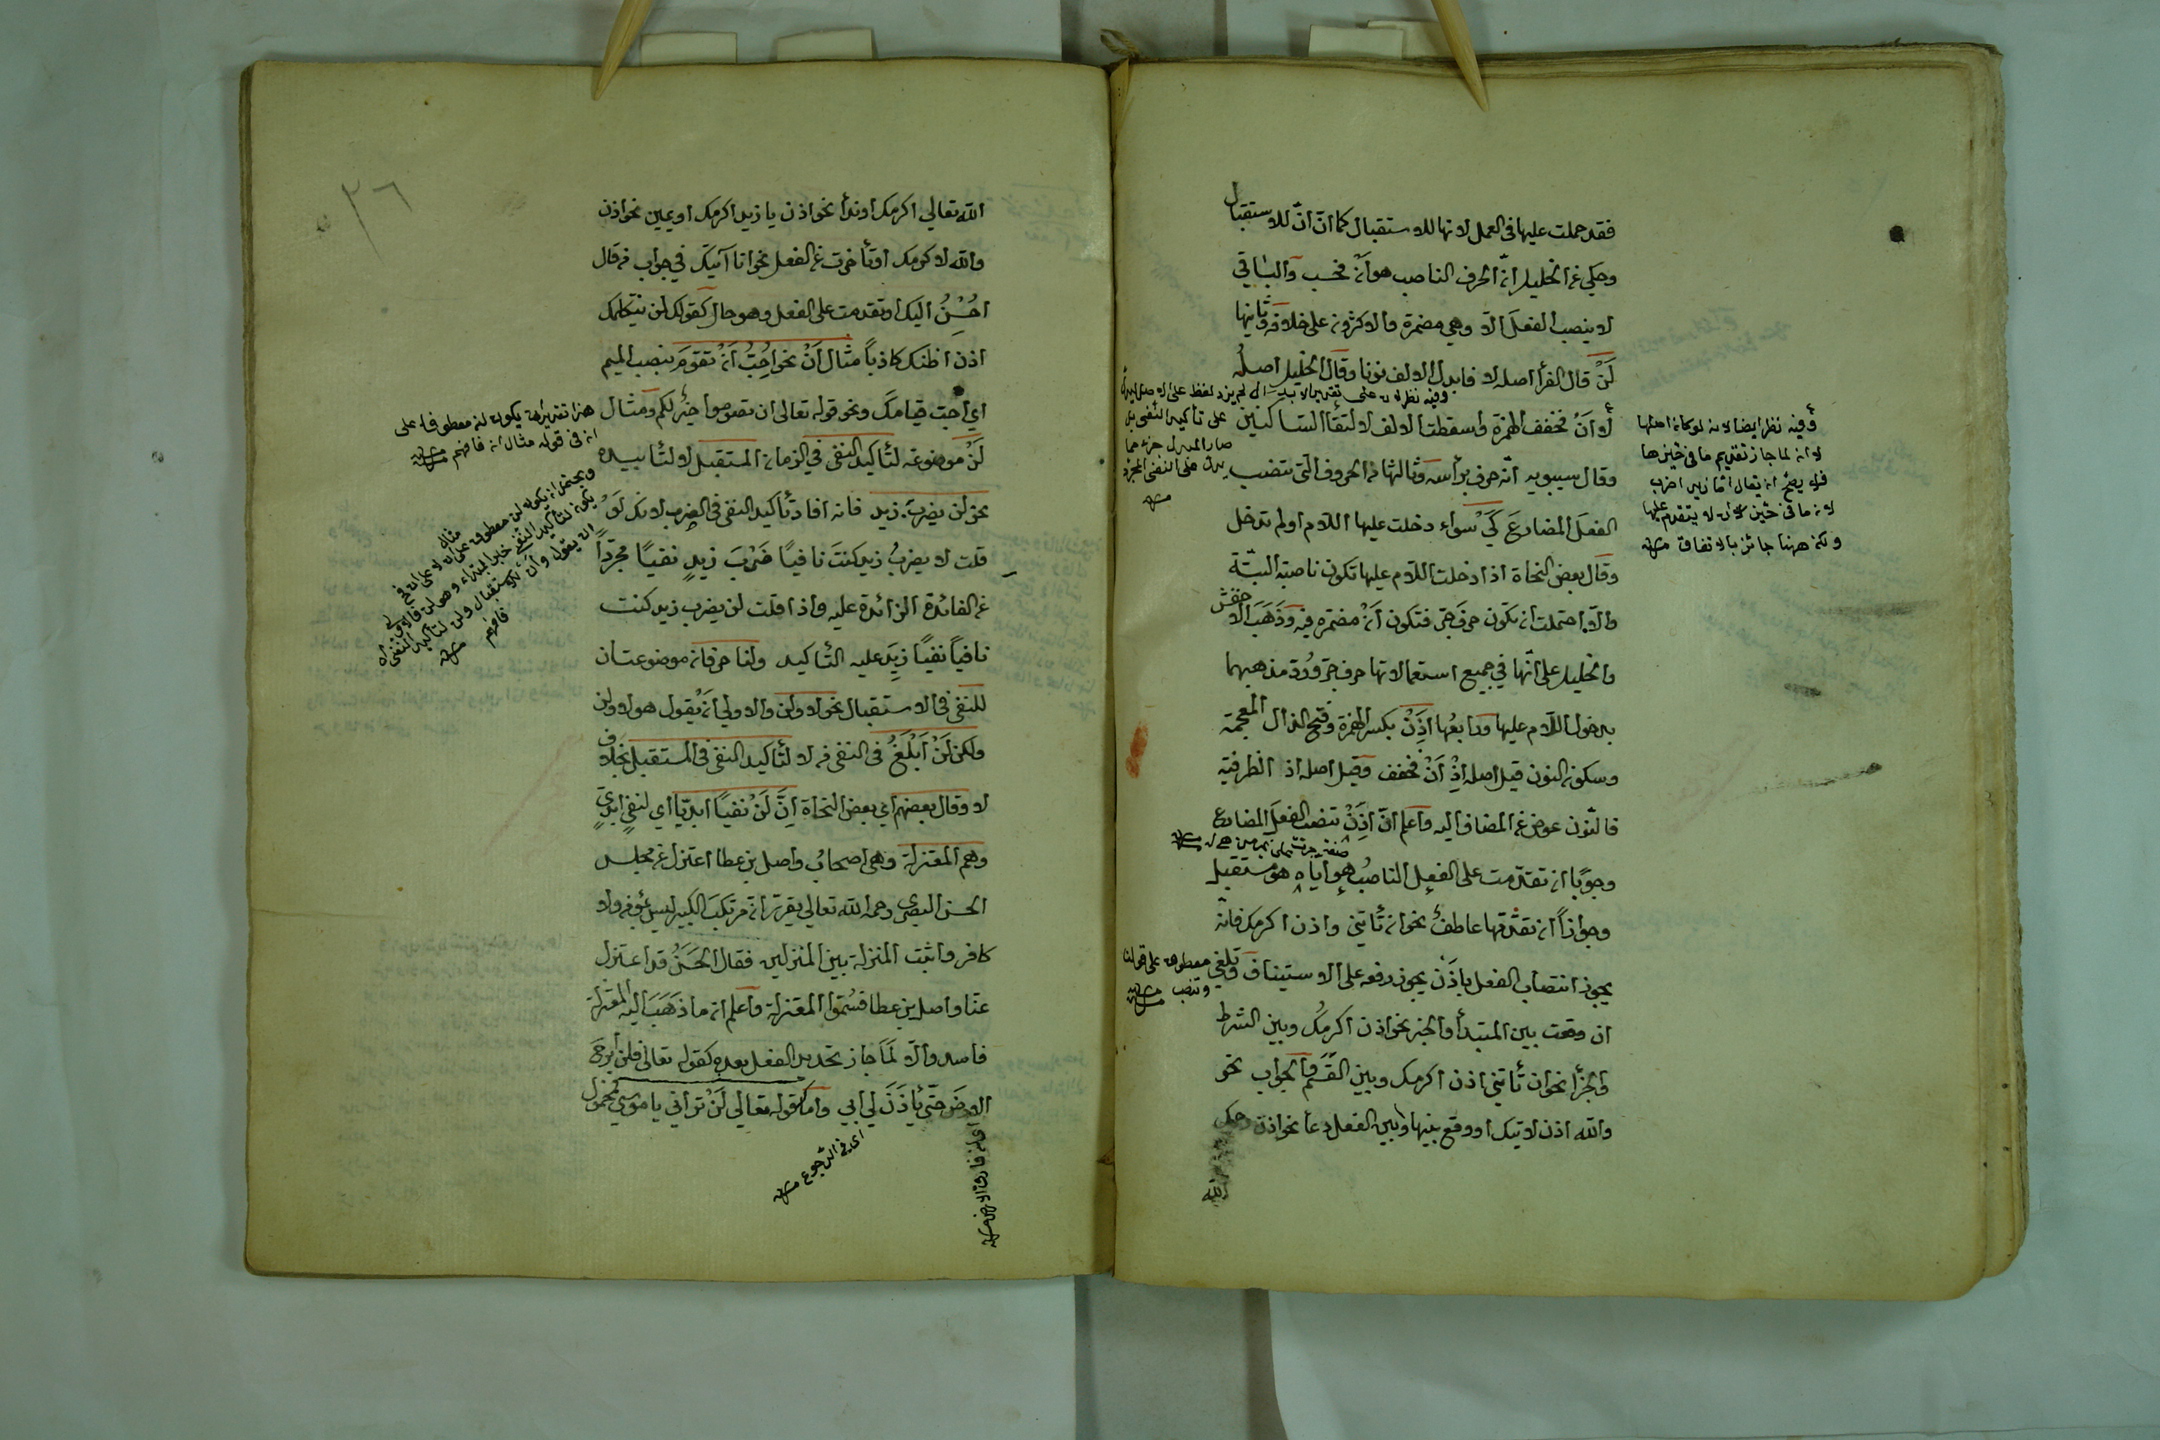 فقد حملت عليها في العمل لانها للاستقبال كما انّ انّ للاستقبال
وحكي عن الخليل انّ الحرف الناصب هو اَنْ فحسب والباقي
لا ينصب الفعلَ الّا وهي مضمرة والاكثرون على خلافه وثانيها
لَنْ قال الفرأ اصله لا فابدل الالف نونا وقال الخليل اصلُه
لا اَنْ فخفف الهمزة واسقطت الالف لالتقأ الساكنين
وقال سيبويه انّه حرف برأسه وثالثها من الحروف التي تنصب
الفعلَ المضارعَ كَيْ سواء دخلت عليها اللام او لم تدخل
وقال بعض النحاة اذا دخلت اللّام عليها تكون ناصبة البتّة
والّا احتملت ان تكون حرف جرّ فتكون اَنْ مضمرة فيه وذَهَبَ الاخفش
والخليل على انّها في جميع استعمالاتها حرف جرّ ورُدّ مذهبهما
بدخول اللّام عليها ورابعُها اِذَنْ بكسر الهمزة وفتح الذال المعجمة
وسكون النون قيل اصله اِذْ اَنْ فخفف وقيل اصله اذ الظرفية
فالنّون عوض عن المضاف اليه واعلم انّ اِذَنْ تنصب الفعلَ المضارع
وجوبًا ان تقدّمت على الفعل الناصبُ هو ايّاه هو مستقبل
وجوازاً ان تقدّمها عاطفٌ نحو ان تأتني واذن اكرمك فانّه
يجوز انتصاب الفعل باِذَنْ يجوز رفعه على الاستيناف وتلغي
ان وقعت بين المبتدأ والخبر نحو اذن اكرمُك وبين الشرط
والجزأ نحو ان تأتني اذن اكرمك وبين القَسَم والجواب نحو
والله اذن لاتيك او وقع بينها وبين الفعل دعأ نحو اذن رحمك
الله
وفيه نظر ايضا لانه لو كان اصلها
لا ان لما جاز تقديم ما في حيّزها
فلا يصح ان يقال امّا زيدا اضرب
لان ما في حيّز لا ان لا يتقدم عليها
ولكن ههنا جائز بالاتفاق منه
على تأكيد النفي بل
صار المبدل جزء مما
يدل على النفي المجرّد
منه
معطوف على قولنا
وتنصب منه
٢٦
الله تعالى اكرمك او ندأ نحو اذن يا زيد اكرمك او يمين نحو اذن
والله لاكرمك او تأخرت عن الفعل نحو انا آتيك في جواب من قال
احُسِنُ اليك او تقدمت على الفعل وهو حال كقولك لمن يتكلمك
اذن اظنك كاذباً مثال اَنْ نحو اُحِبُّ اَنْ تقومَ بنصب الميم
اي اُحِبّ قيامك ونحو قوله تعالى ان تصوموا خيرٌ لكم ومثال
لَنْ موضوعة لتأكيد النفي في الزمان المستقبل لا لتأبيده
نحو لن يضربَ زيد فانه افاد تأكيد النفي في الضرب لانك لَوْ
قلت لا يضربُ زيد كنتَ نافيًا ضَرْبَ زيدٍ نفيًا مجرّداً
عن الفائدة الزائدة عليه واذا قلت لن يضرب زيد كنت
نافياً نفيًا زِيدَ عليه التّاكيد ولنا حرفان موضوعتان
للنفي في الاستقبال نحو لا ولن والاولى ان يقول هو لا ولن
ولكن لَنْ اَبْلَغُ في النفي من لا لتأكيد النفي في المستقبل بخلاف
لا وقال بعضهم اي بعض النحاة اِنَّ لَنْ نفيًا ابديّا اي لنفيٍ ابديّ
وهم المعتزلة وهي اصحابُ واصل بن عطا اعتزل عن مجلس
الحسن البصري رحمه الله تعالى يقرّر انّ مرتكبَ الكبير ليس بمؤمن ولا
كافر واثبت المنزلة بين المنزلين فقال الحَسَنُ قد اعتزل
عنّا واصل بن عطا فسُمّوا المعتزلة واعلم ان ما ذَهَبَ اليه المعتزلة
فاسد والّا لَمَا جاز تحديد الفعل بعده كقوله تعالى فلن ابرحَ
الارضَ حتّى يأذَنَ لي ابي وامّا قوله تعالى لَنْ تراني يا موسى فمحمول
هذا تقدير ان يكون لن معطوفا على
ان في قوله مثال ان فافهم منه
اي في الرجوع منه
اي لن افارق الارض منه